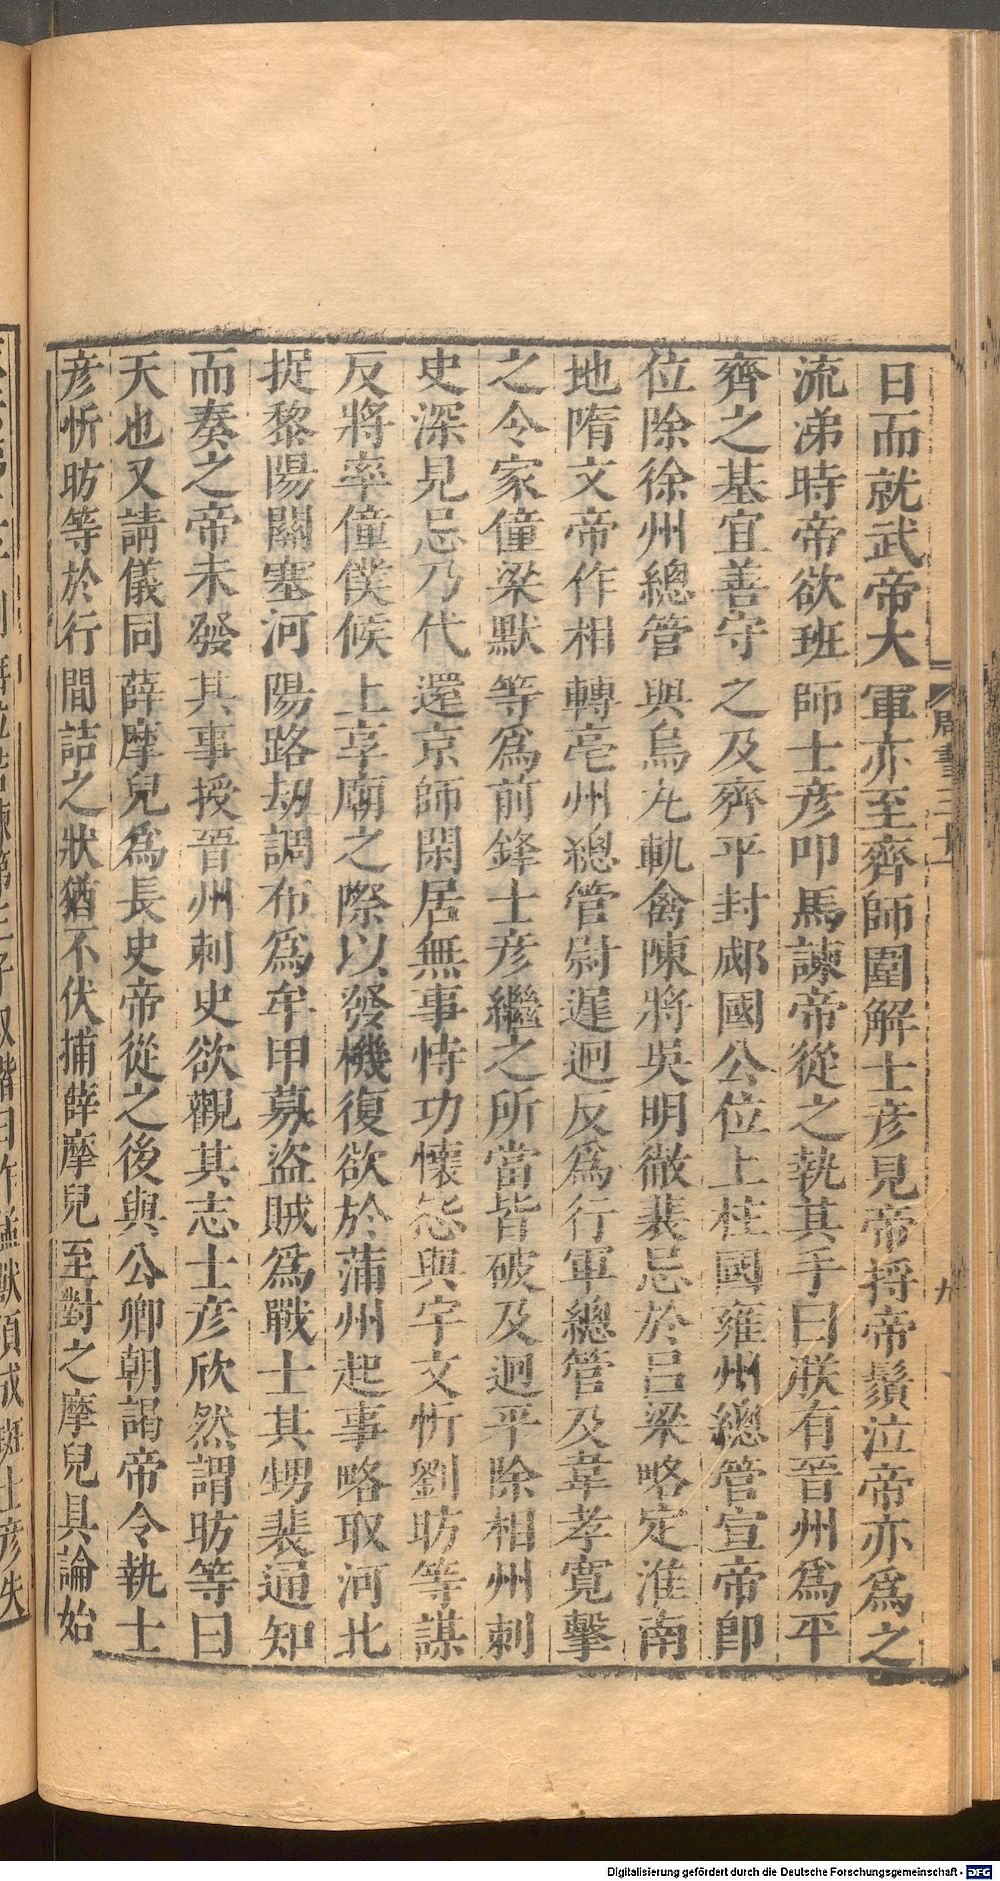 日而就武帝大軍亦至齊師圍解士彥見帝捋帝鬚泣帝亦爲之
流涕時帝欲班師士彥叩馬諫帝從之執其手曰朕有晉州爲平
齊之基宜善守之及齊平封郕國公位上柱國雍州總管宣帝即
位除徐州總管與烏丸軌禽陳將吳明徹裴忌於呂梁略定淮南
地隋文帝作相轉亳州總管尉遲迥反爲行軍總管及韋孝寬擊
之令家僮梁默等爲前鋒士彥繼之所當皆破及迥平除相州刺
史深見忌乃代還京師閑居無事恃功懷怨與宇文忻劉昉等謀
反將率僮僕候上享廟之際以發機復欲於蒲州起事略取河北
捉黎陽關塞河陽路劫調布爲牟甲募盜賊爲戰士其甥裴通知
而奏之帝未發其事授晉州刺史欲觀其志士彥欣然謂昉等曰
天也又請儀同薛摩兒爲長史帝從之後與公卿朝謁帝令執士
彥忻昉等於行間詰之狀猶不伏捕薛摩兒至對之摩兒具論始
周書三十
九
Digitalisierung gefördert durch die Deutsche Forschungsgemeinschaft - DFG